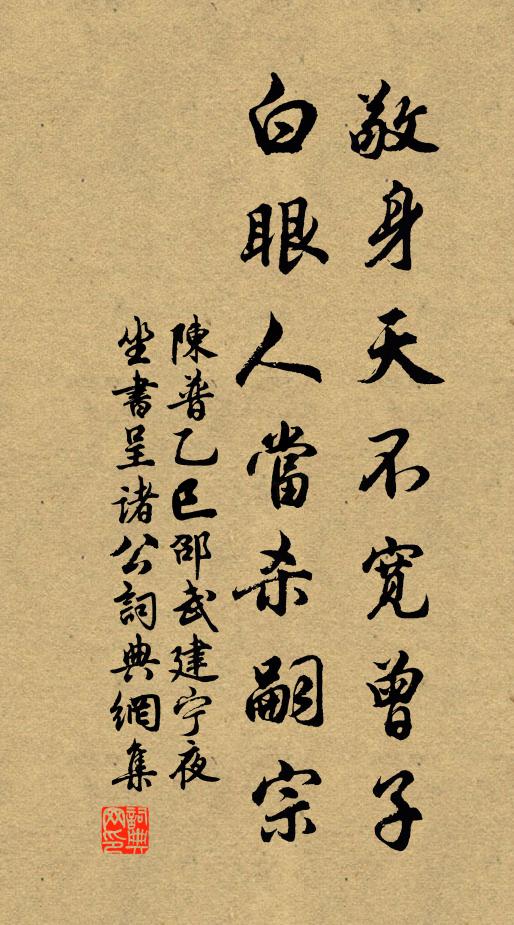 敬身天不宽曾子
白眼人當杀嗣宗
陳普乙巳邵武建宁夜
坐書呈诸公詞典網集
詞典
网印